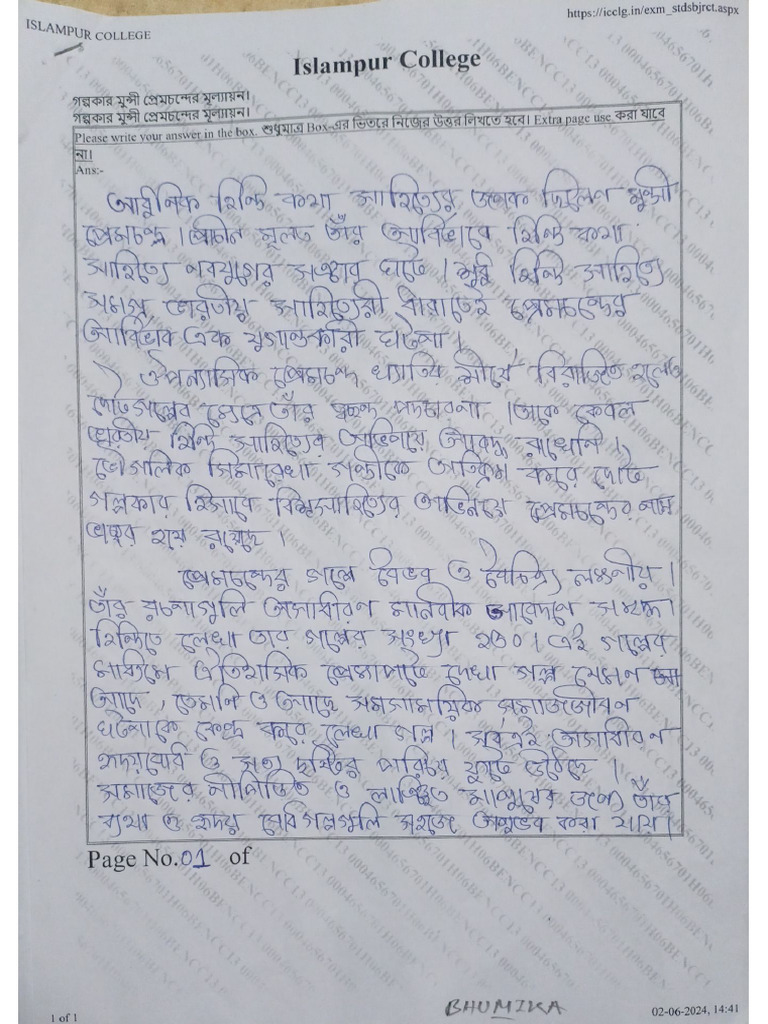 https://icclg.in/exm_stdsbjrct.aspx
ISLAMPUR COLLEGE
Islampur College
গল্পকার মুন্সী প্রেমচন্দের মূল্যায়ন।
গল্পকার মুন্সী প্রেমচন্দের মূল্যায়ন।
Please write your answer in the box. শুধুমাত্র Box-এর ভিতরে নিজের উত্তর লিখতে হবে। Extra page use করা যাবে
না।
Ans:-
আধুনিক হিন্দি কথা সাহিত্যের জনক ছিলেন মুন্সী
প্রেমচন্দ্র। মূলত তাঁর আবির্ভাবে হিন্দি কথা
সাহিত্যে নবযুগের সঞ্চার ঘটে। শুধু হিন্দি সাহিত্যে
সমগ্র ভারতীয় সাহিত্যেরী ধারাতেই প্রেমচন্দের
আবির্ভাব এক যুগান্তকারী ঘটনা।
ঔপন্যাসিক প্রেমচন্দ খ্যাতির শীর্ষে বিরাজিত হলেও
ছোটগল্পের ক্ষেত্রে তাঁর স্বচ্ছন্দ পদচারনা। তাকে কেবল
ভারতীয় হিন্দি সাহিত্যের আঙিনায় আবদ্ধ রাখেনি।
ভৌগলিক সিমারেখা অতিক্রম করে ছোট
গল্পকার হিসাবে বিশ্বসাহিত্যের আঙিনায় প্রেমচন্দের নাম
হয়ে রয়েছে।
প্রেমচন্দের গল্পে বৈভব ও বৈচিত্র্য লক্ষনীয়।
তাঁর রচনাগুলি অসাধারণ মানবীক আবেদনে সমৃদ্ধ।
হিন্দিতে লেখা তার গল্পের সংখ্যা ২৫০। এই গল্পের
মাধ্যমে ঐতিহাসিক প্রেক্ষাপটে লেখা গল্প যেমন
আছে, তেমনি ও আছে সমসাময়িক সমাজজীবন
ঘটনাকে কেন্দ্র করে লেখা গল্প। সর্বত্রই অসাধারণ
হৃদয়বোধ ও সত্য দৃষ্টির পরিচয় ফুটে উঠেছে।
সমাজের নীপিড়িত ও লাঞ্ছিত মানুষের জন্যে তাঁর
ব্যথা ও হৃদয় গল্পগুলি সহজে অনুভব করা যায়।
Page No.01 of
BHUMIKA
1 of 1
02-06-2024, 14:41